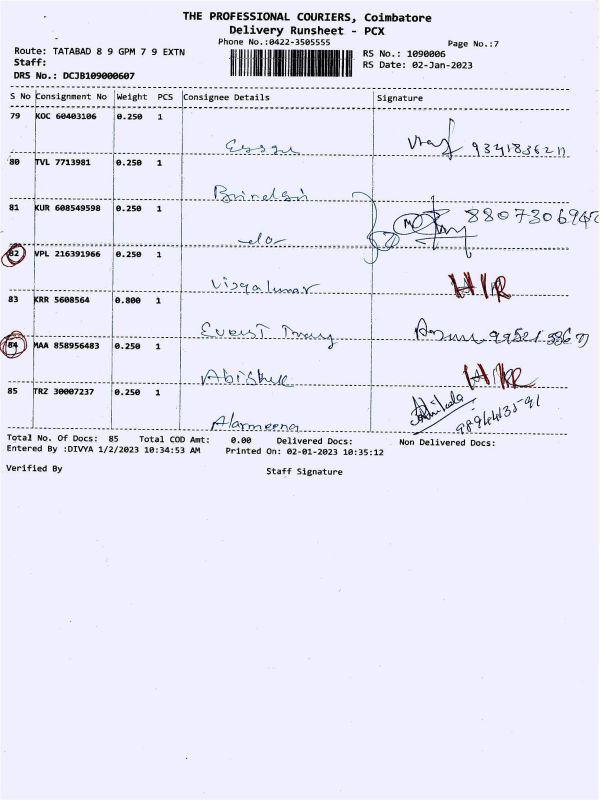 THE PROFESSIONAL COURIERS, Coimbatore
Delivery Runsheet - PCX
Phone No.:0422-3505555
Page No.:7
Route: TATABAD 8 9 GPM 7 9 EXTN
RS No.: 1090006
Staff:
RS Date: 02-Jan-2023
DRS No.: DCJB109000607
S No Consignment No Weight PCS Consignee Details Signature
79 KOC 60403106 0.250 1
80 TVL 7713981 0.250 1
81 KUR 608549598 0.250 1
do
82 VPL 216391966 0.250 1
83 KRR 5608564 0.800 1
Event
84 MAA 858956483 0.250 1
Abishek
85 TRZ 30007237 0.250 1
Alarmeena
Total No. Of Docs: 85 Total COD Amt: 0.00 Delivered Docs: Non Delivered Docs:
Entered By :DIVYA 1/2/2023 10:34:53 AM Printed On: 02-01-2023 10:35:12
Verified By Staff Signature